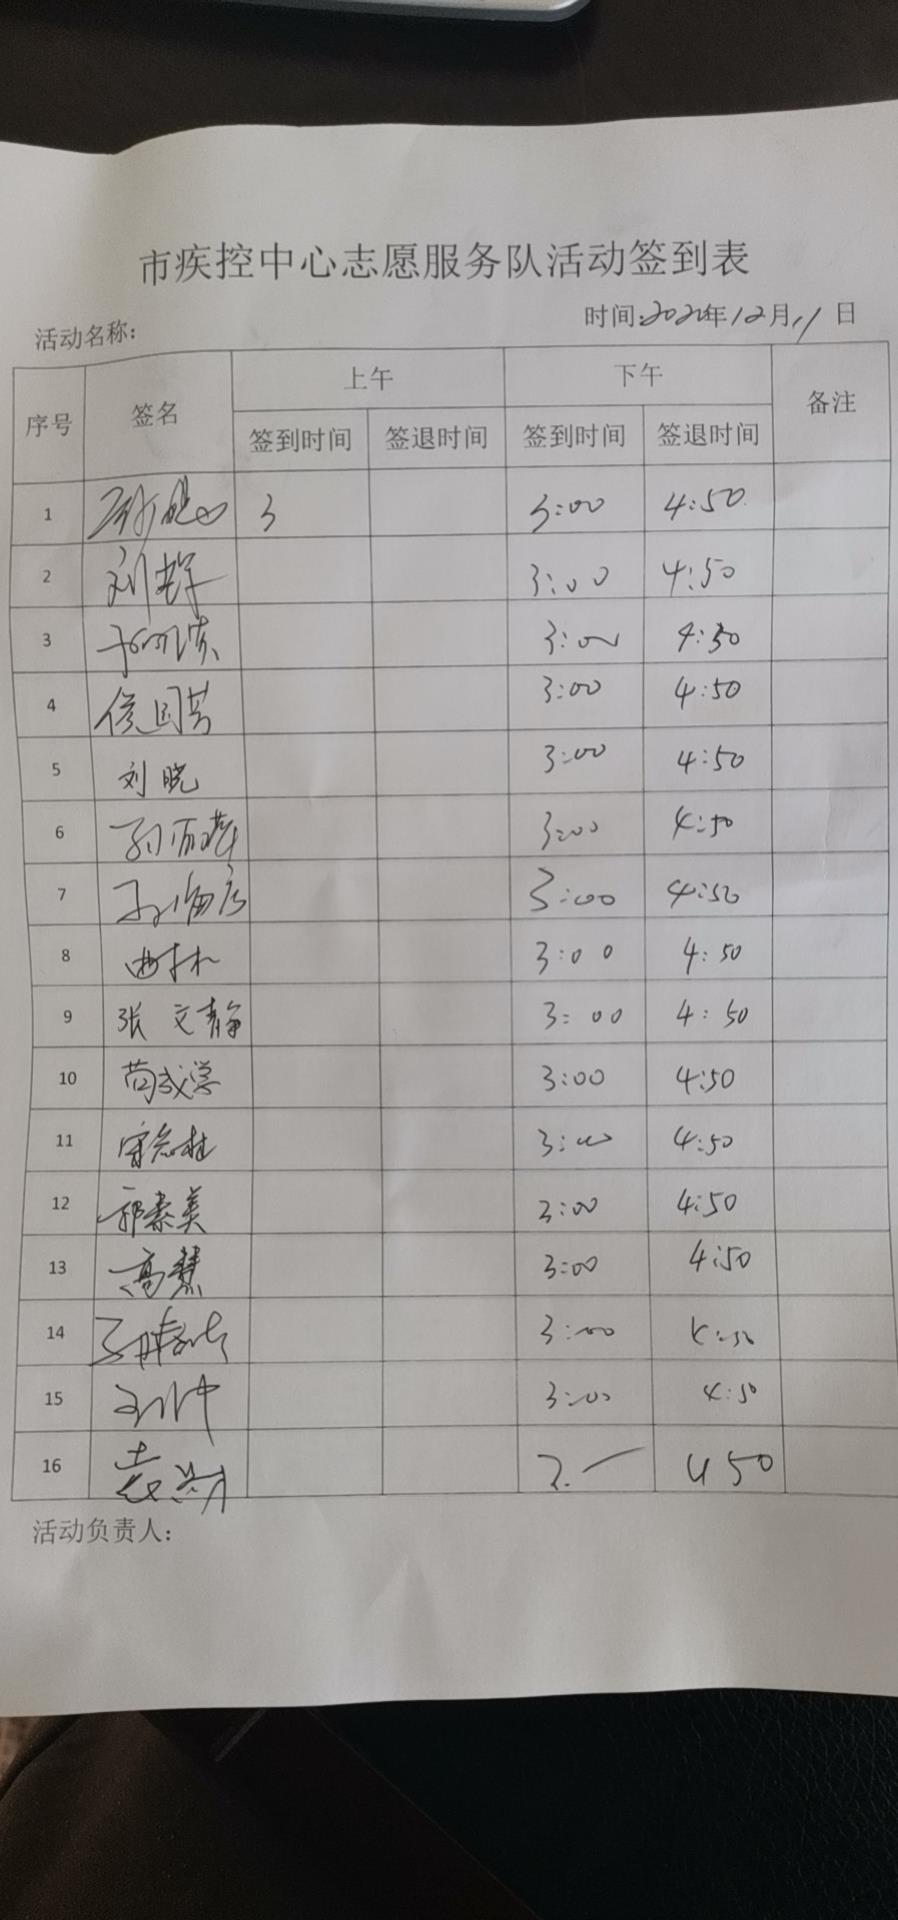 市疾控中心志愿服务队活动签到表
活动名称: 时间:2020年12月11日
序号 签名 上午 下午 备注
签到时间 签退时间 签到时间 签退时间
1 3 3:00 4:50
2 刘 3:00 4:50
3 3:00 4:50
4 侯国芳 3:00 4:50
5 刘晓 3:00 4:50
6 3:00 4:50
7 3:00 4:50
8 3:00 4:50
9 张文静 3:00 4:50
10 苟成学 3:00 4:50
11 3:00 4:50
12 郭素美 3:00 4:50
13 高慧 3:00 4:50
14 3:00 4:50
15 3:00 4:50
16 袁 450
活动负责人: